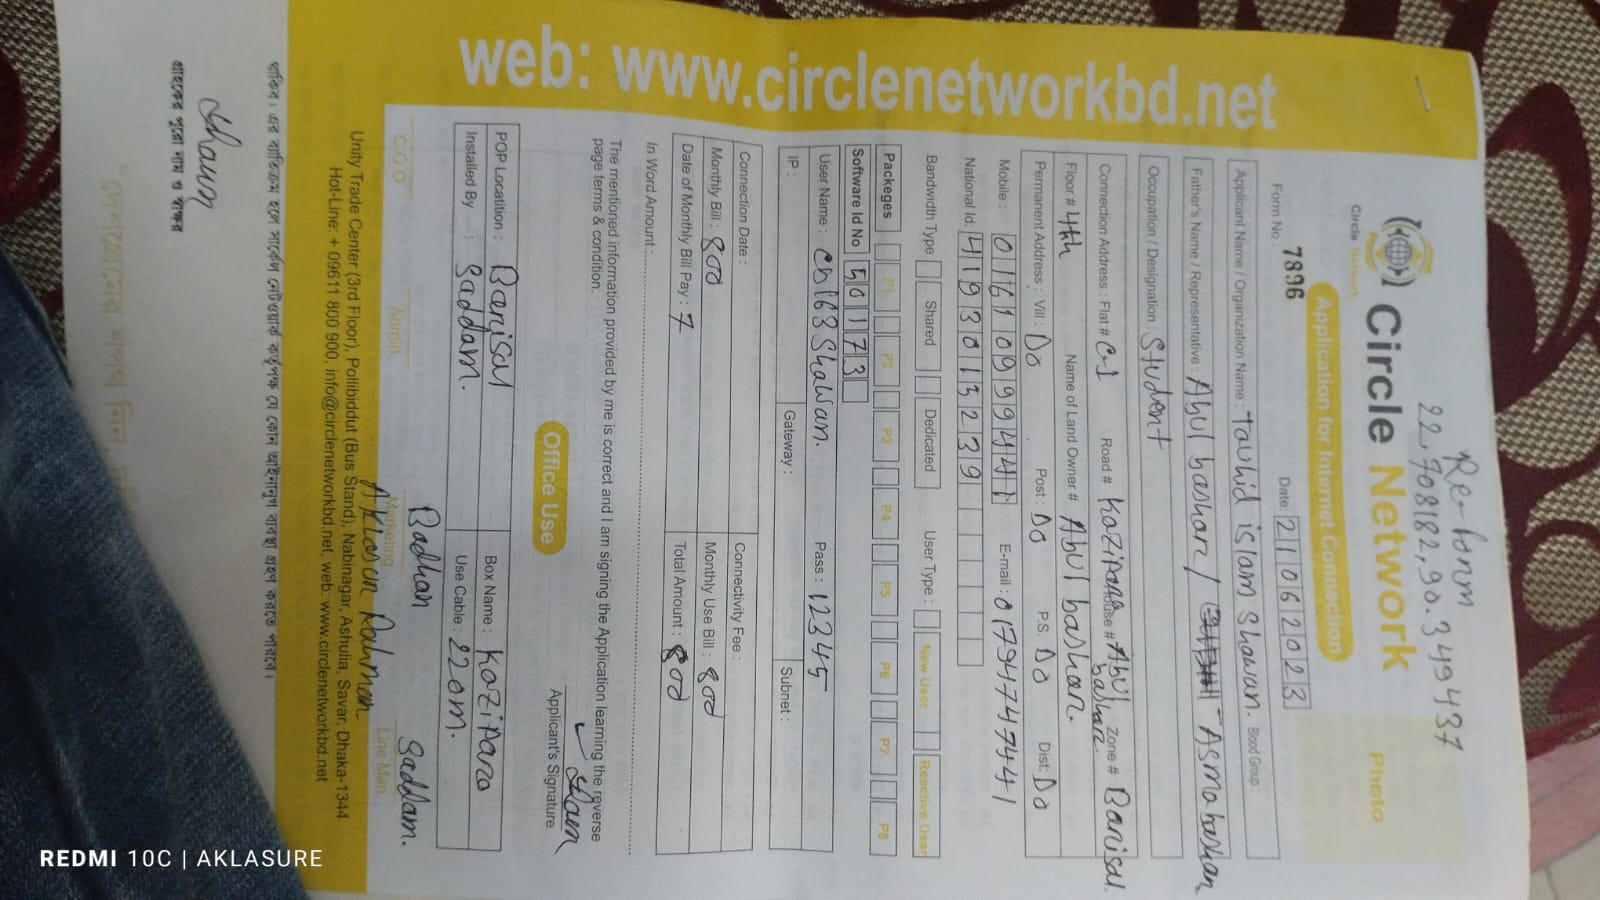 Re-form
22.708182,90.349437
Circle Network
Circle Network
Photo
Application for Internet Connection
Form No : 7896 Date: 21062023
Applicant Name / Organization Name : Tawhid islam Shawan. Blood Group :
Father's Name / Representative : Abul bashar / Asma bashar
Occupation / Designation : Student
Connection Address : Flat # C-1 Road # Kazipara House # Abul bashar Zone # Barisal.
Floor # 4th Name of Land Owner # Abul bashar.
Permanent Address : Vill : Do Post : Do P.S. Do Dist: Do
Mobile : 01610999441 E-mail : 01794747441
National Id: 4193015239
Bandwidth Type Shared Dedicated User Type : New User Reactive User
Packeges P1 P2 P3 P4 P5 P6 P7 P8
Software Id No 50173
User Name : cb163Shawan. Pass : 12345
IP : Gateway : Subnet :
Connection Date : Connectivity Fee :
Monthly Bill : 800 Monthly Use Bill : 800
Date of Monthly Bill Pay : 7 Total Amount : 800
In Word Amount :
The mentioned information provided by me is correct and I am signing the Application learning the reverse
page terms & condition.
Applicant's Signature
Office Use
POP Locatition : Barisal Box Name : Kazipara
Installed By : Saddam. Use Cable : 220m.
Badhan Saddam.
C.O.O Admin Marketing Line Man
Aklasur Rahman.
Unity Trade Center (3rd Floor), Pollibiddut (Bus Stand), Nabinagar, Ashulia, Savar, Dhaka-1344
Hot-Line: + 09611 800 900, info@circlenetworkbd.net, web: www.circlenetworkbd.net
web: www.circlenetworkbd.net
থাকিব। এর ব্যতিক্রম হলে সার্কেল নেটওয়ার্ক কর্তৃপক্ষ যে কোন আইনানুগ ব্যবস্থা গ্রহণ করতে পারবে।
Shawn
গ্রাহকের পুরো নাম ও স্বাক্ষর
REDMI 10C | AKLASURE